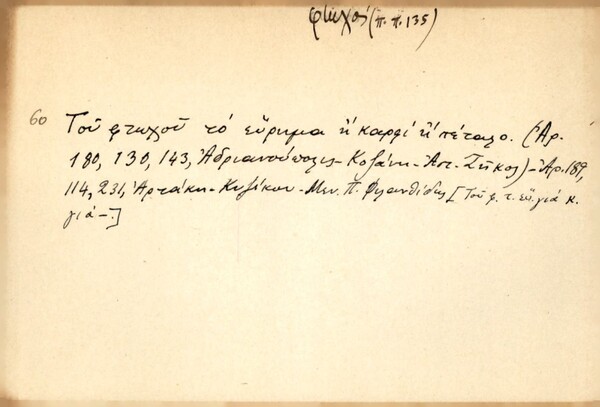 φτωχός (π. π. 135)
60 Τοῦ φτωχοῦ τό εὕρημα ἤ καρφί ἤ πέταλο. (Ἀρ.
180, 130, 143, Ἀδριανούπολις - Κοζάνη - Ἀπ. Σιῆκος) - Ἀρ. 189,
114, 231, Ἀρτάκη - Κυζίκου - Μεν. Π. Φιλανθίδης [Τοῦ φ. τ. εὕ. γιά κ.
γιά -.]